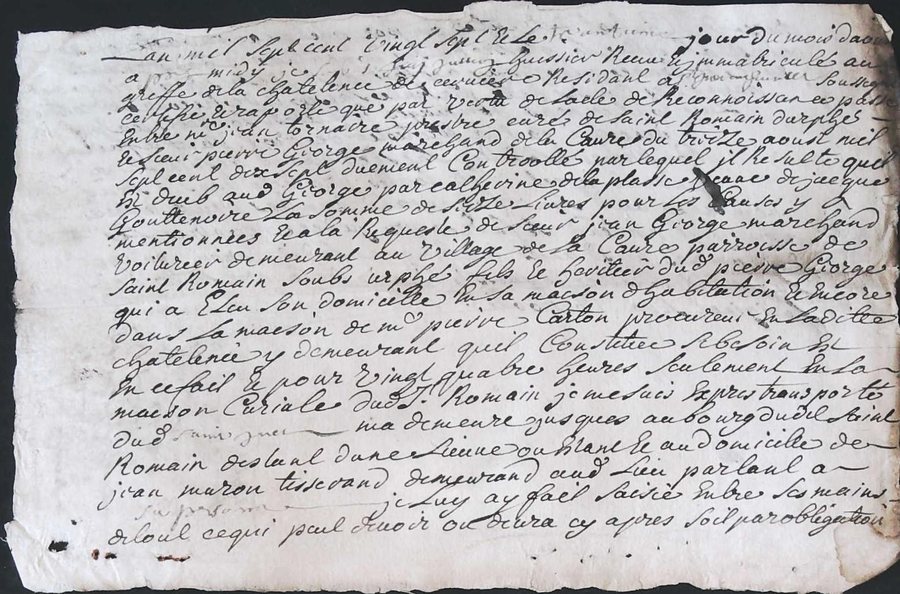 Lan mil sept cent vingt sept & le trantieme jour du mois daou
a midy je huissier Receu & immatriculé au
greffe de la chatelenie de cerviere Residant a soussig
certifie & raporte que par vertu de lacte de Reconnoissance passé
Entre mre jean tornaire prestre curé de saint Romain durphé
& sieur pierre George marchand de la Caure du treize aoust mil
sept cent dix sept duement Controollé par lequel jl Resulte quil
est deub aud George par catherine de la plasse veuve de jacque
Gouttenoire La somme de seize livres pour les Causes y
mentionnées & a la Requeste de sieur jean George marchand
voiturier demeurant au village de la Caure parroisse de
saint Romain soubs urphé fils & heritier dud pierre George
qui a Eleu son domicille En sa maison dhabitation & Encore
dans La maison de me pierre Carton procureur En Ladite
chatelenie y demeurant quil Constitue sebesoin Est
En ce fait & pour vingt quatre heures seulement En La
maison Curiale dud st Romain je me suis Expres transporté
dud saint juet ma demeure jusques au bourg dudit saint
Romain distant dune Lieue ou Etant & au domicille de
jean muron tisserand demeurand aud Lieu parlant a
sa personne je Luy ay fait saisie Entre ses mains
de tout ce qui peut devoir ou devra cy apres soit par obligation